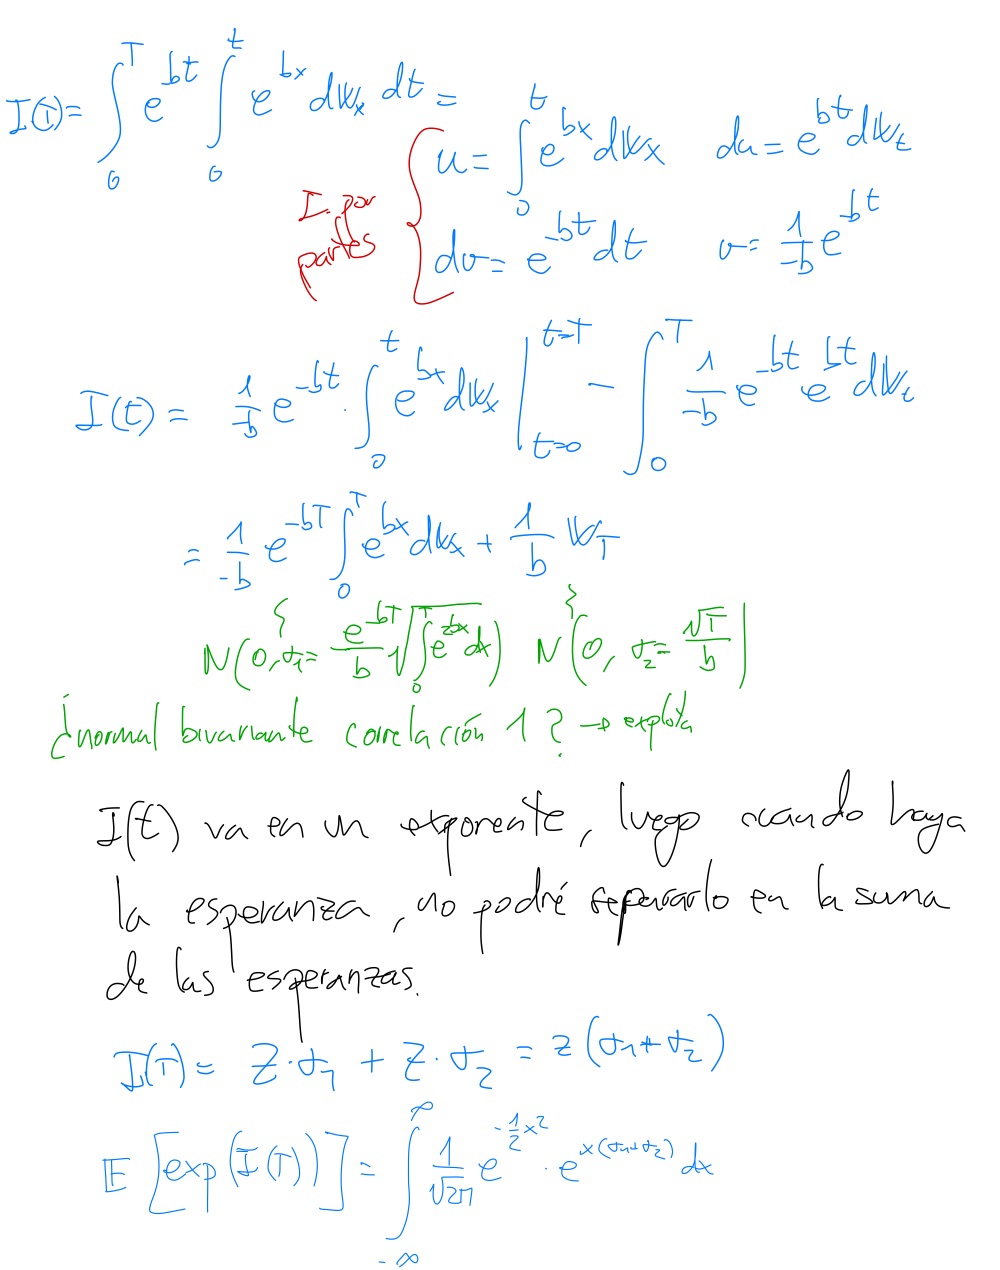 I(T) = ∫_0^T e^{bt} ∫_0^t e^{bx} dW_x dt =
I. por partes { u = ∫_0^t e^{bx} dW_x   du = e^{bt} dW_t
dv = e^{-bt} dt   v = \frac{1}{-b} e^{-bt}
I(t) = \frac{1}{-b} e^{-bt} · ∫_0^t e^{bx} dW_x |_{t=0}^{t=T} - ∫_0^T \frac{1}{-b} e^{-bt} e^{bt} dW_t
= \frac{1}{-b} e^{-bT} ∫_0^T e^{bx} dW_x + \frac{1}{b} W_T
N(0, σ_1 = \frac{e^{-bT}}{b} \sqrt{∫_0^T e^{2bx} dx})   N(0, σ_2 = \frac{\sqrt{T}}{b})
¿normal bivariante correlación 1? → explota
I(t) va en un exponente, luego cuando haga
la esperanza, no podré separarlo en la suma
de las esperanzas.
I(T) = Z·σ_1 + Z·σ_2 = z(σ_1+σ_2)
E[exp(I(T))] = ∫_{-∞}^{∞} \frac{1}{\sqrt{2π}} e^{-\frac{1}{2}x^2} · e^{x(σ_1+σ_2)} dx